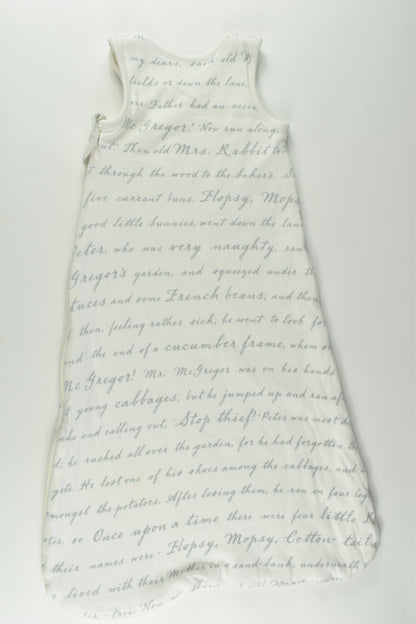 my dears, said old
fields or down the lane,
our Father had an accid
Mc Gregor! 'Now run along,
out. Then old Mrs. Rabbit too
t through the wood to the baker's. S
five currant buns. Flopsy, Mops
good little bunnies, went down the lan
Peter, who was very naughty, ran
Gregor's garden, and squeezed under th
tuces and some French beans; and then
then, feeling rather sick, he went to look for
und the end of a cucumber frame, whom s
Mc Gregor! Mr. McGregor was on his hands
t young cabbages, but he jumped up and ran af
ake and calling out, 'Stop thief!' Peter was most d
d; he rushed all over the garden, for he had forgotten th
gate. He lost one of his shoes among the cabbages, and
mongst the potatoes. After losing them, he ran on four leg
ter, so Once upon a time there were four little R
their names were - Flopsy, Mopsy, Cotton-tail
e lived with their Mother in a sand-bank, underneath
fir-tree. 'Now